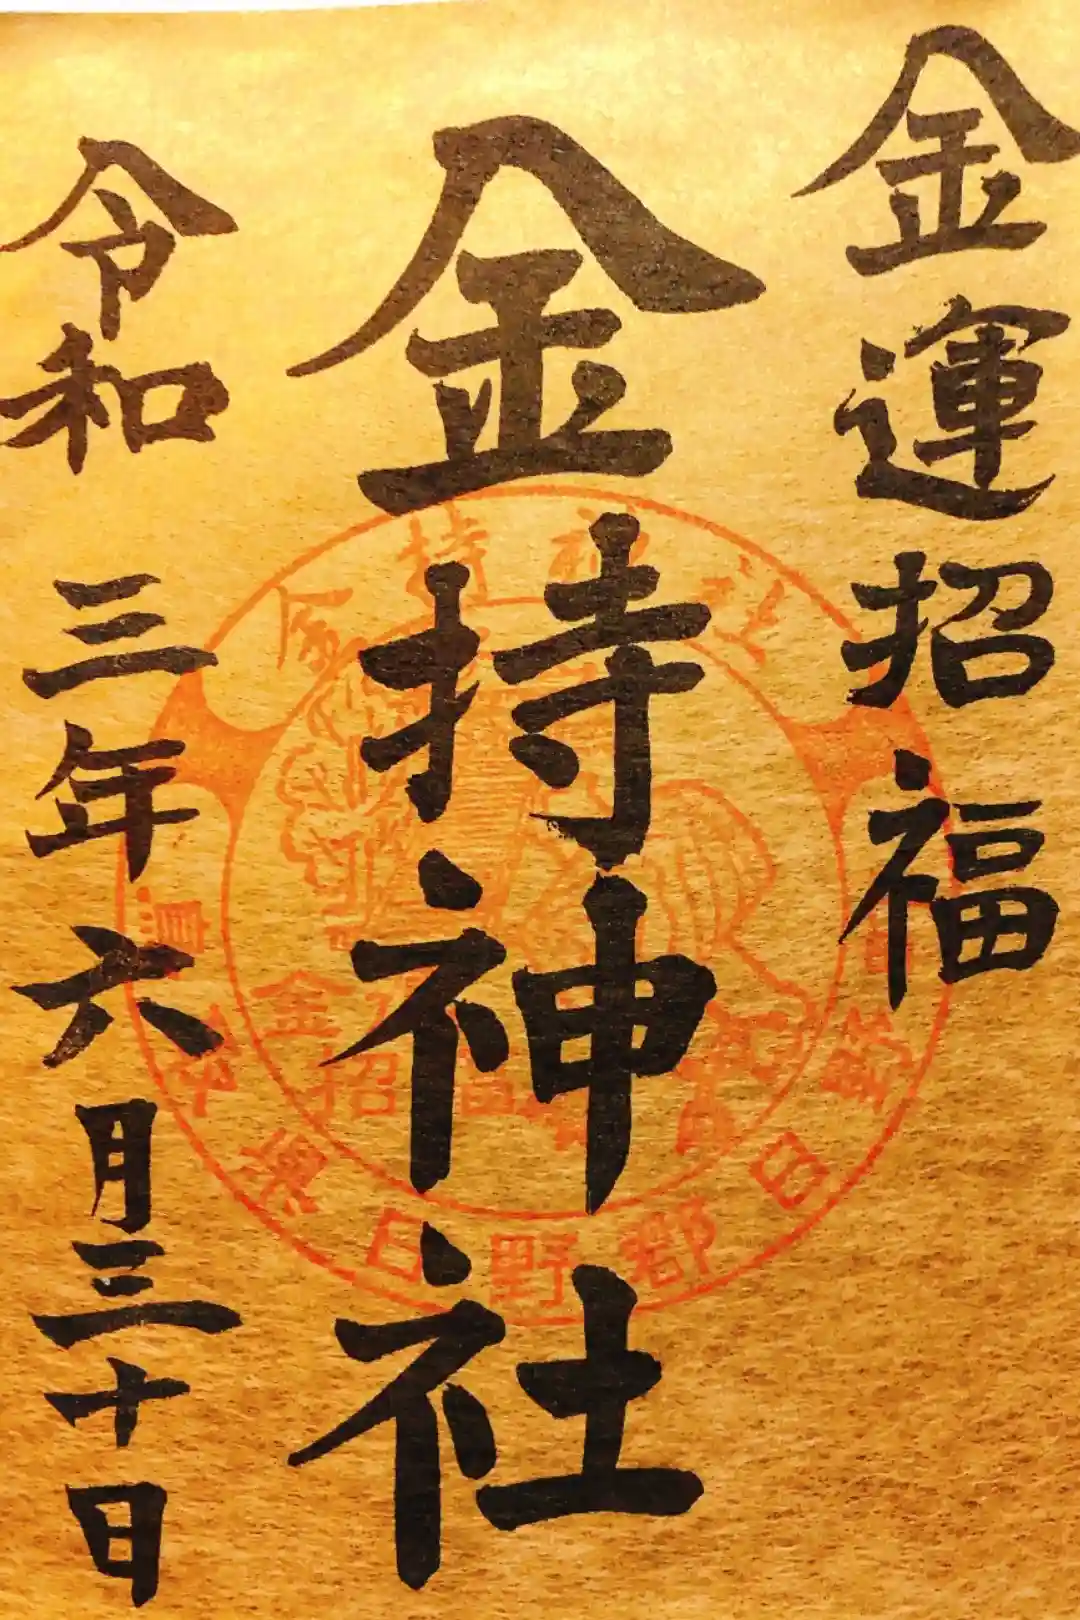 金運招福
金持神社
令和三年六月三十日
金持神社
鳥取県日野郡日野
金
招福